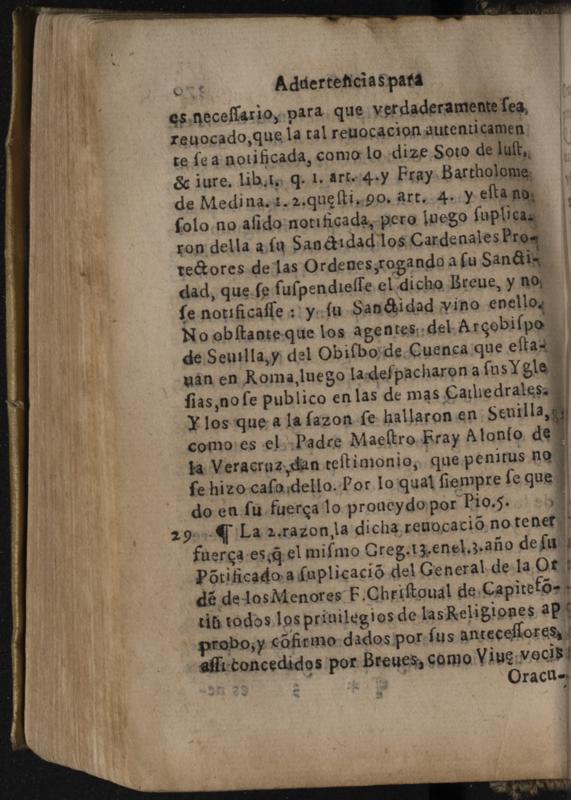 Aduertencias para
es necessario, para que verdaderamente sea
reuocado, que la tal reuocacion autenticamen
te sea notificada, como lo dize Soto de Iust.
& iure. lib. 1. q. 1. art. 4. y Fray Bartholome
de Medina. 1. 2. quęsti. 90. art. 4. y esta no
solo no a sido notificada, pero luego suplica-
ron della a su Sanctidad los Cardenales Pro-
tectores de las Ordenes, rogando a su Sancti-
dad, que se suspendiesse el dicho Breue, y no
se notificasse: y su Sanctidad vino enello.
No obstante que los agentes del Arçobispo
de Seuilla, y del Obisbo de Cuenca que esta-
uan en Roma, luego la despacharon a sus Ygle
sias, no se publico en las de mas Cathedrales.
Y los que a la sazon se hallaron en Seuilla,
como es el Padre Maestro Fray Alonso de
la Veracruz, dan testimonio, que penitus no
se hizo caso dello. Por lo qual siempre se que
do en su fuerça lo proueydo por Pio. 5.
29 ¶ La 2. razon, la dicha reuocaciō no tener
fuerça es, q̄ el mismo Greg. 13. enel. 3. año de su
Pōtificado a suplicaciō del General de la Or
dē de los Menores F. Christoual de Capitefō-
tiū todos los priuilegios de las Religiones ap
probo, y cōfirmo dados por sus antecessores,
assi concedidos por Breues, como Viuę vocis
Oracu-